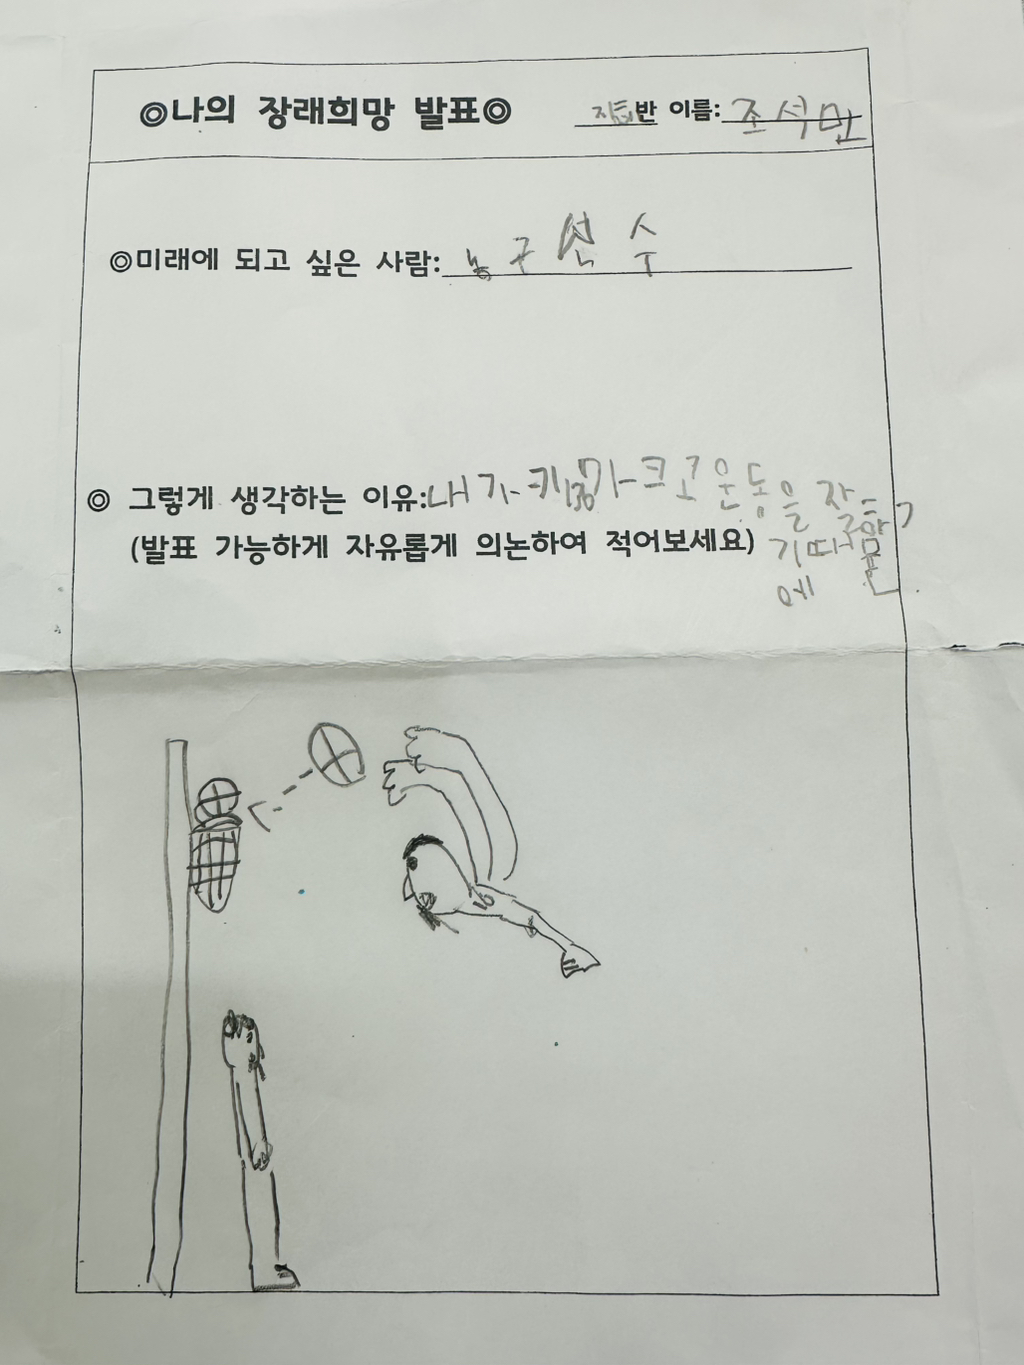 ◎나의 장래희망 발표◎ 반 이름: 조석민
◎미래에 되고 싶은 사람: 농구선수
◎ 그렇게 생각하는 이유: 내가 키가 크고 운동을 잘하
(발표 가능하게 자유롭게 의논하여 적어보세요) 기때문
에